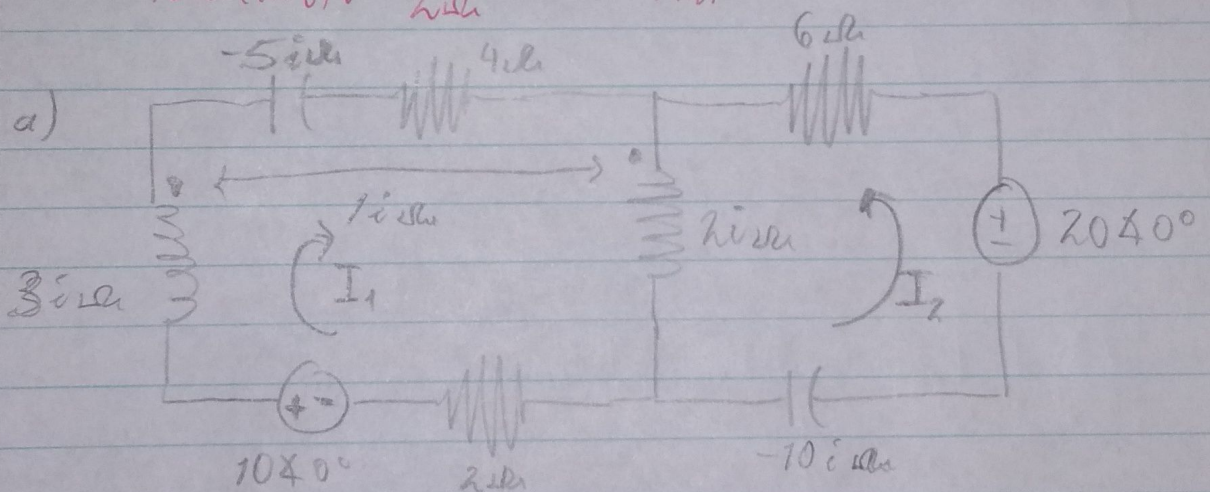 2Ω
-5iΩ 4Ω 6Ω
a)
1iΩ
3iΩ I₁ 2iΩ I₂ + - 20∡0°
+ -
10∡0° 2Ω -10iΩ